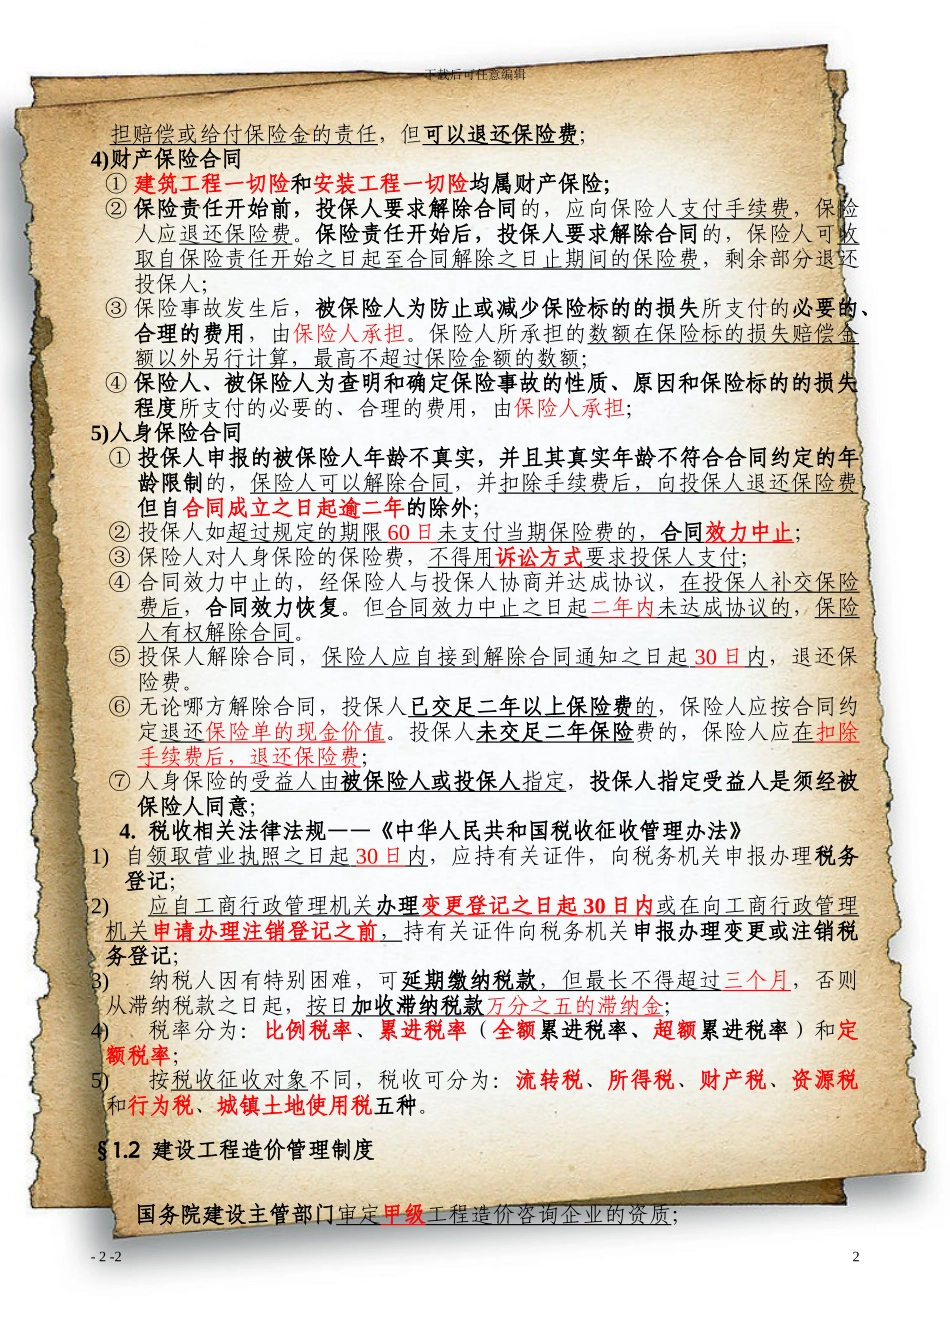 下载后可任意编辑
担赔偿或给付保险金的责任，但可以退还保险费；
4)财产保险合同
① 建筑工程一切险和安装工程一切险均属财产保险；
② 保险责任开始前，投保人要求解除合同的，应向保险人支付手续费，保险
人应退还保险费。保险责任开始后，投保人要求解除合同的，保险人可收
取自保险责任开始之日起至合同解除之日止期间的保险费，剩余部分退还
投保人；
③ 保险事故发生后，被保险人为防止或减少保险标的的损失所支付的必要的、
合理的费用，由保险人承担。保险人所承担的数额在保险标的损失赔偿金
额以外另行计算，最高不超过保险金额的数额；
④ 保险人、被保险人为查明和确定保险事故的性质、原因和保险标的的损失
程度所支付的必要的、合理的费用，由保险人承担；
5)人身保险合同
① 投保人申报的被保险人年龄不真实，并且其真实年龄不符合合同约定的年
龄限制的，保险人可以解除合同，并扣除手续费后，向投保人退还保险费
但自合同成立之日起逾二年的除外；
② 投保人如超过规定的期限 60 日未支付当期保险费的，合同效力中止；
③ 保险人对人身保险的保险费，不得用诉讼方式要求投保人支付；
④ 合同效力中止的，经保险人与投保人协商并达成协议，在投保人补交保险
费后，合同效力恢复。但合同效力中止之日起二年内未达成协议的，保险
人有权解除合同。
⑤ 投保人解除合同，保险人应自接到解除合同通知之日起 30 日内，退还保
险费。
⑥ 无论哪方解除合同，投保人已交足二年以上保险费的，保险人应按合同约
定退还保险单的现金价值。投保人未交足二年保险费的，保险人应在扣除
手续费后，退还保险费；
⑦ 人身保险的受益人由被保险人或投保人指定，投保人指定受益人是须经被
保险人同意；
4. 税收相关法律法规——《中华人民共和国税收征收管理办法》
1) 自领取营业执照之日起 30 日内，应持有关证件，向税务机关申报办理税务
登记；
2) 应自工商行政管理机关办理变更登记之日起 30 日内或在向工商行政管理
机关申请办理注销登记之前，持有关证件向税务机关申报办理变更或注销税
务登记；
3) 纳税人因有特别困难，可延期缴纳税款，但最长不得超过三个月，否则
从滞纳税款之日起，按日加收滞纳税款万分之五的滞纳金；
4) 税率分为：比例税率、累进税率（全额累进税率、超额累进税率）和定
额税率；
5) 按税收征收对象不同，税收可分为：流转税、所得税、财产税、资源税
和行为税、城镇土地使用税五种。
§1.2 建设工程造价管理制度
国务院建设主管部门审定甲级工程造价咨询企业的资质；
- 2 -2 2